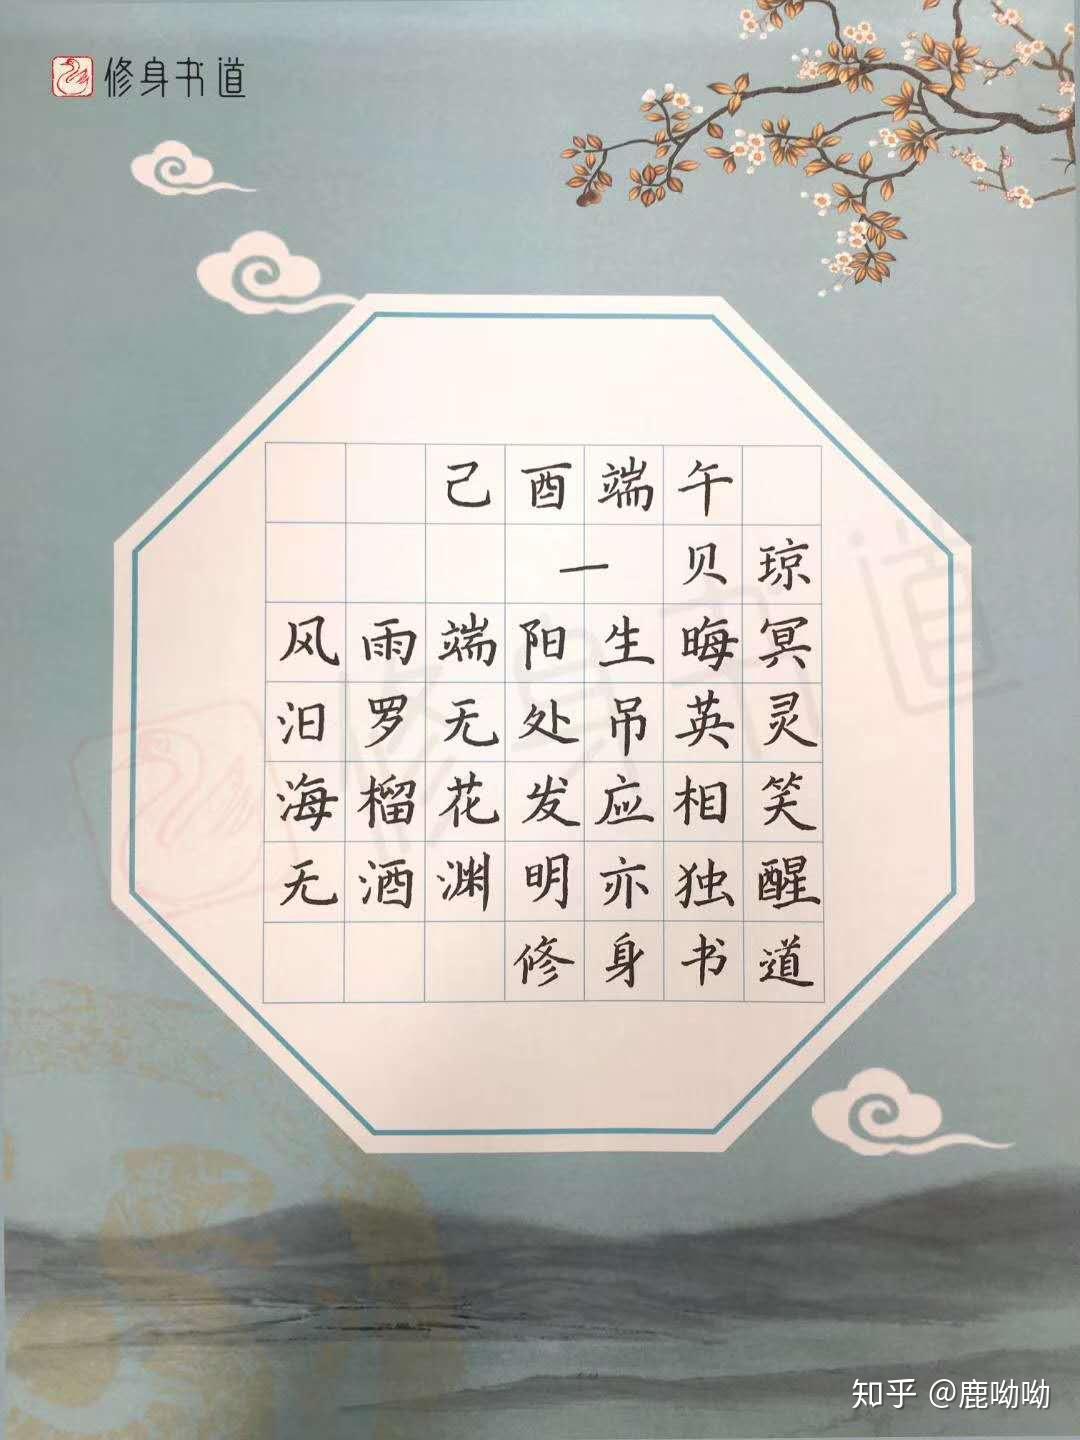 修身书道
己酉端午
一 贝琼
风雨端阳生晦冥
汨罗无处吊英灵
海榴花发应相笑
无酒渊明亦独醒
修身书道
修身书道
知乎 @鹿呦呦